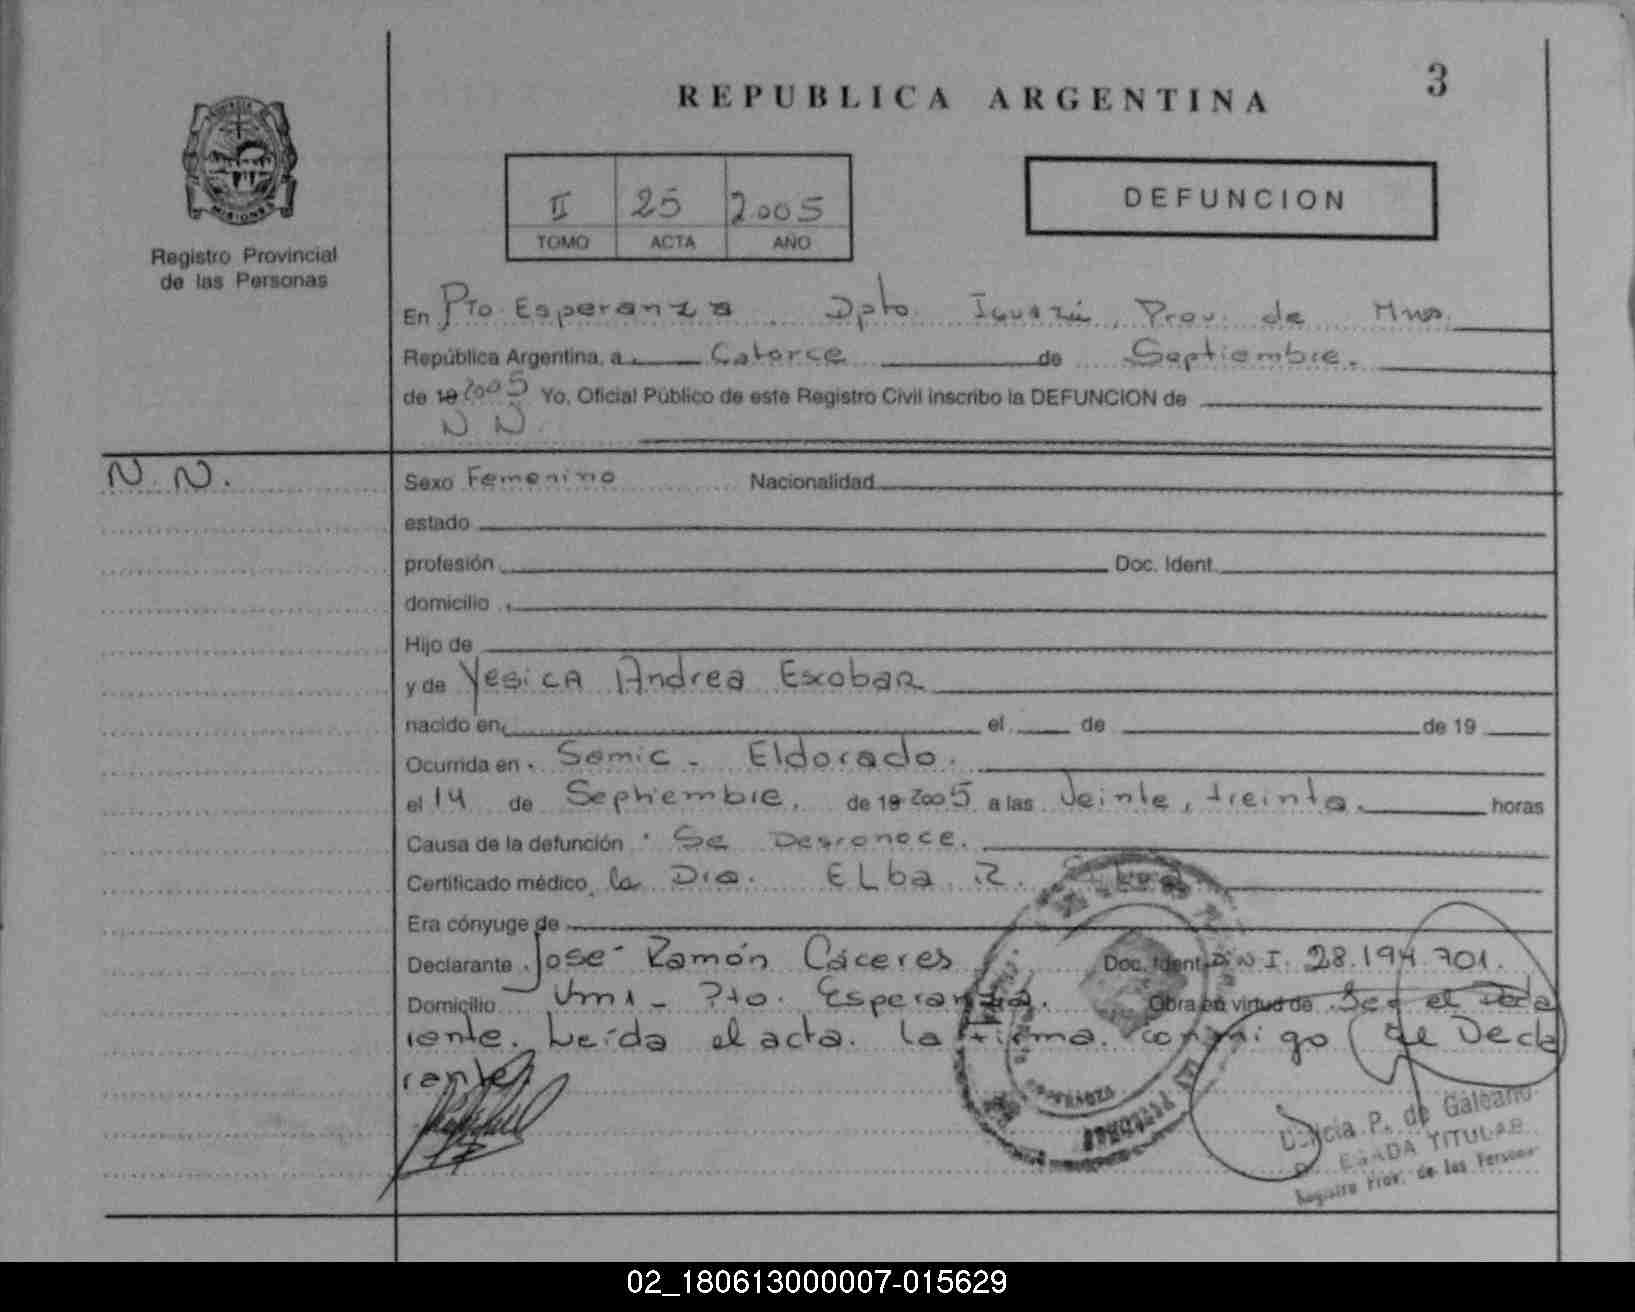 REPUBLICA ARGENTINA
3
MISIONES
Registro Provincial
de las Personas
II 25 2005
TOMO ACTA AÑO
DEFUNCION
En Pto. Esperanza Dpto. Iguazú, Prov. de Mnes.
República Argentina, a Catorce de Septiembre.
de 19 2005 Yo, Oficial Público de este Registro Civil inscribo la DEFUNCION de
N N.
N. N.
Sexo Femenino Nacionalidad
estado
profesión Doc. Ident.
domicilio
Hijo de
y de Yesica Andrea Escobar
nacido en el de de 19
Ocurrida en Samic - Eldorado.
el 14 de Septiembre, de 19 2005 a las Veinte, treinta. horas
Causa de la defunción Se Desconoce.
Certificado médico, la Dra. ELba R.
Era cónyuge de
Declarante José Ramón Cáceres Doc. Ident. D.N.I. 28.194.701.
Domicilio Pto. Esperanza. Obra en virtud de Ser el Decla
rante. Leída el acta. La Firma. conmigo el Decla
rante
P. de Galeano
DELEGADA TITULAR
Registro Prov. de las Personas
02_180613000007-015629